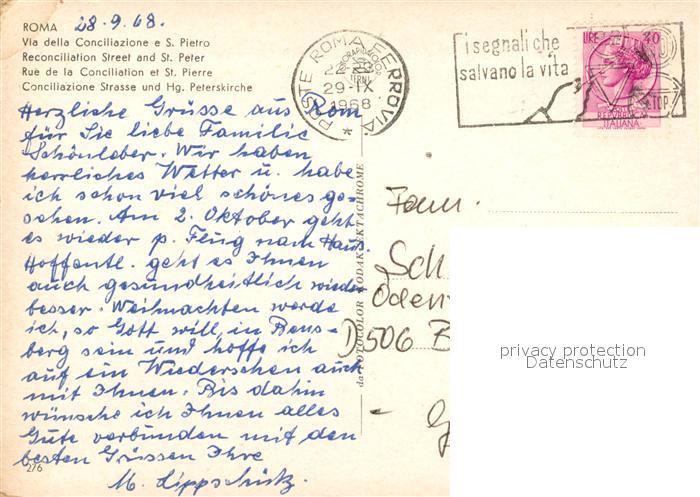 ROMA 28.9.68.
Via della Conciliazione e S. Pietro
Reconciliation Street and St. Peter
Rue de la Conciliation et St. Pierre
Conciliazione Strasse und Hg. Peterskirche
Herzliche Grüsse aus Rom
für Sie liebe Familie
Schönleber. Wir haben
herrliches Wetter u. habe
ich schon viel schönes ge-
sehen. Am 2. Oktober geht
es wieder p. Flug nam Haus.
Hoffentl. geht es Ihnen
auch gesundheitlich wieder
besser. Weihnachten werde
ich, so Gott will, in Bens-
berg sein und hoffe ich
auf ein Wiedersehen auch
mit Ihnen. Bis dahin
wünsche ich Ihnen alles
Gute verbunden mit den
besten Grüssen Ihre
M. Lippschütz.
2/6
POSTE ROMA FERROVIA
29-IX
1968
i segnali che
salvano la vita
STOP
LIRE 40
REPUBBLICA
ITALIANA
da FOTOCOLOR KODAK EKTACHROME
Fam.
Sch
Oden
D 506 B
privacy protection
Datenschutz